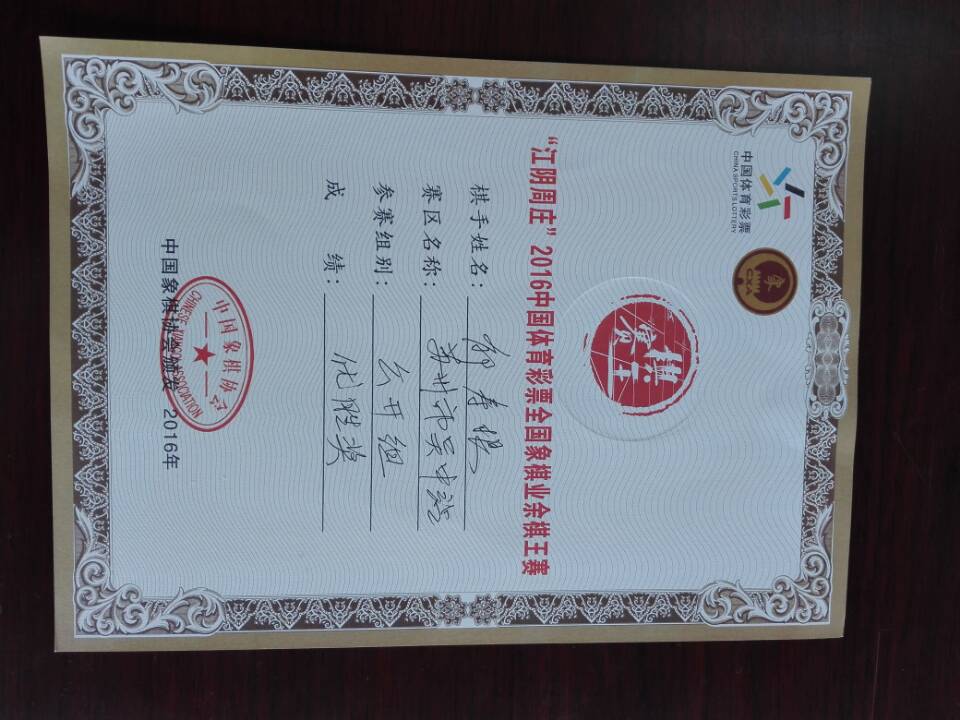 中国体育彩票
CHINA SPORTS LOTTERY
象
CXA
棋王
"江阴周庄"2016中国体育彩票全国象棋业余棋王赛
棋手姓名：
赛区名称：苏州市吴中站
参赛组别：公开组
成绩：优胜奖
中国象棋协会
CHINESE XIANGQI ASSOCIATION
中国象棋协会颁发 2016年